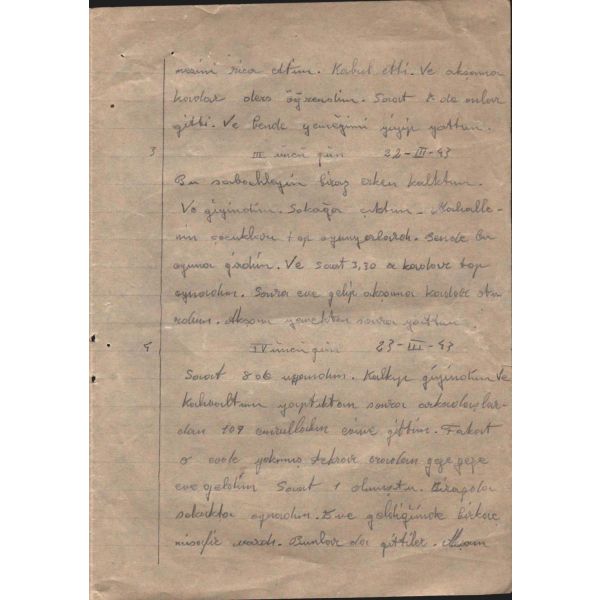 mesini rica ettim. Kabul etti. Ve akşama
kadar ders öğrendim. Saat 8 de onlar
gitti. Ve bende yemeğimi yiyip yattım.
3 III üncü gün 22-III-43
Bu sabahleyin biraz erken kalktım.
Ve giyindim. Sokağa çıktım. Mahalle-
nin çocukları top oynuyorlardı. Bende bu
oyuna girdim. Ve saat 3,30 a kadar top
oynadım. Sonra eve gelip akşama kadar otu-
rdum. Akşam yemekten sonra yattım.
4 IV üncü gün 23-III-43
Saat 8 de uyandım. Kalkıp giyindim Ve
Kahvaltımı yaptıktan sonra arkadaşlar-
dan 109 evine gittim. Fakat
o evde yokmuş tekrar oradan geze geze
eve geldim Saat 1 olmuştu. Biraz da
sokakta oynadım. Eve geldiğimde birkaç
misafir vardı. Bunlar da gittiler. Akşam